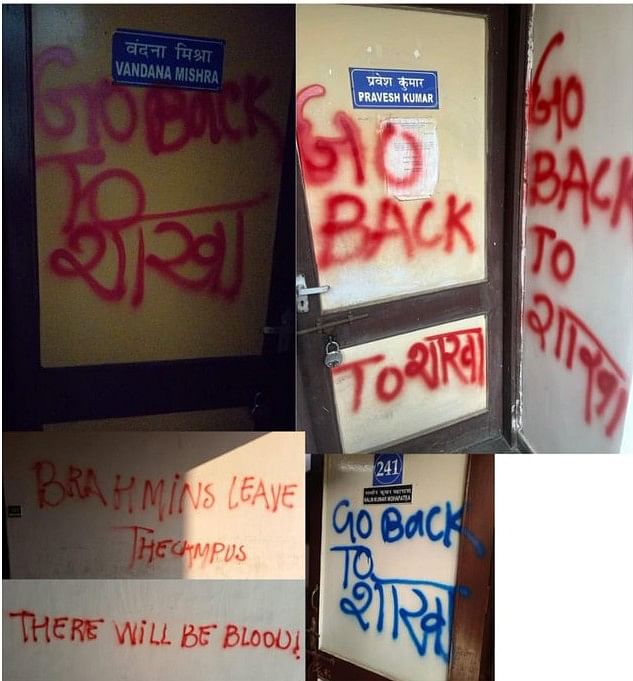 वंदना मिश्रा
VANDANA MISHRA
GO BACK
TO
शाखा
प्रवेश कुमार
PRAVESH KUMAR
GO
BACK
TO शाखा
GO
BACK
TO
शाखा
BRAHMINS LEAVE
THE CAMPUS
THERE WILL BE BLOOD!
241
नलीन कुमार महापात्रा
NALIN KUMAR MOHAPATRA
GO BACK
TO
शाखा